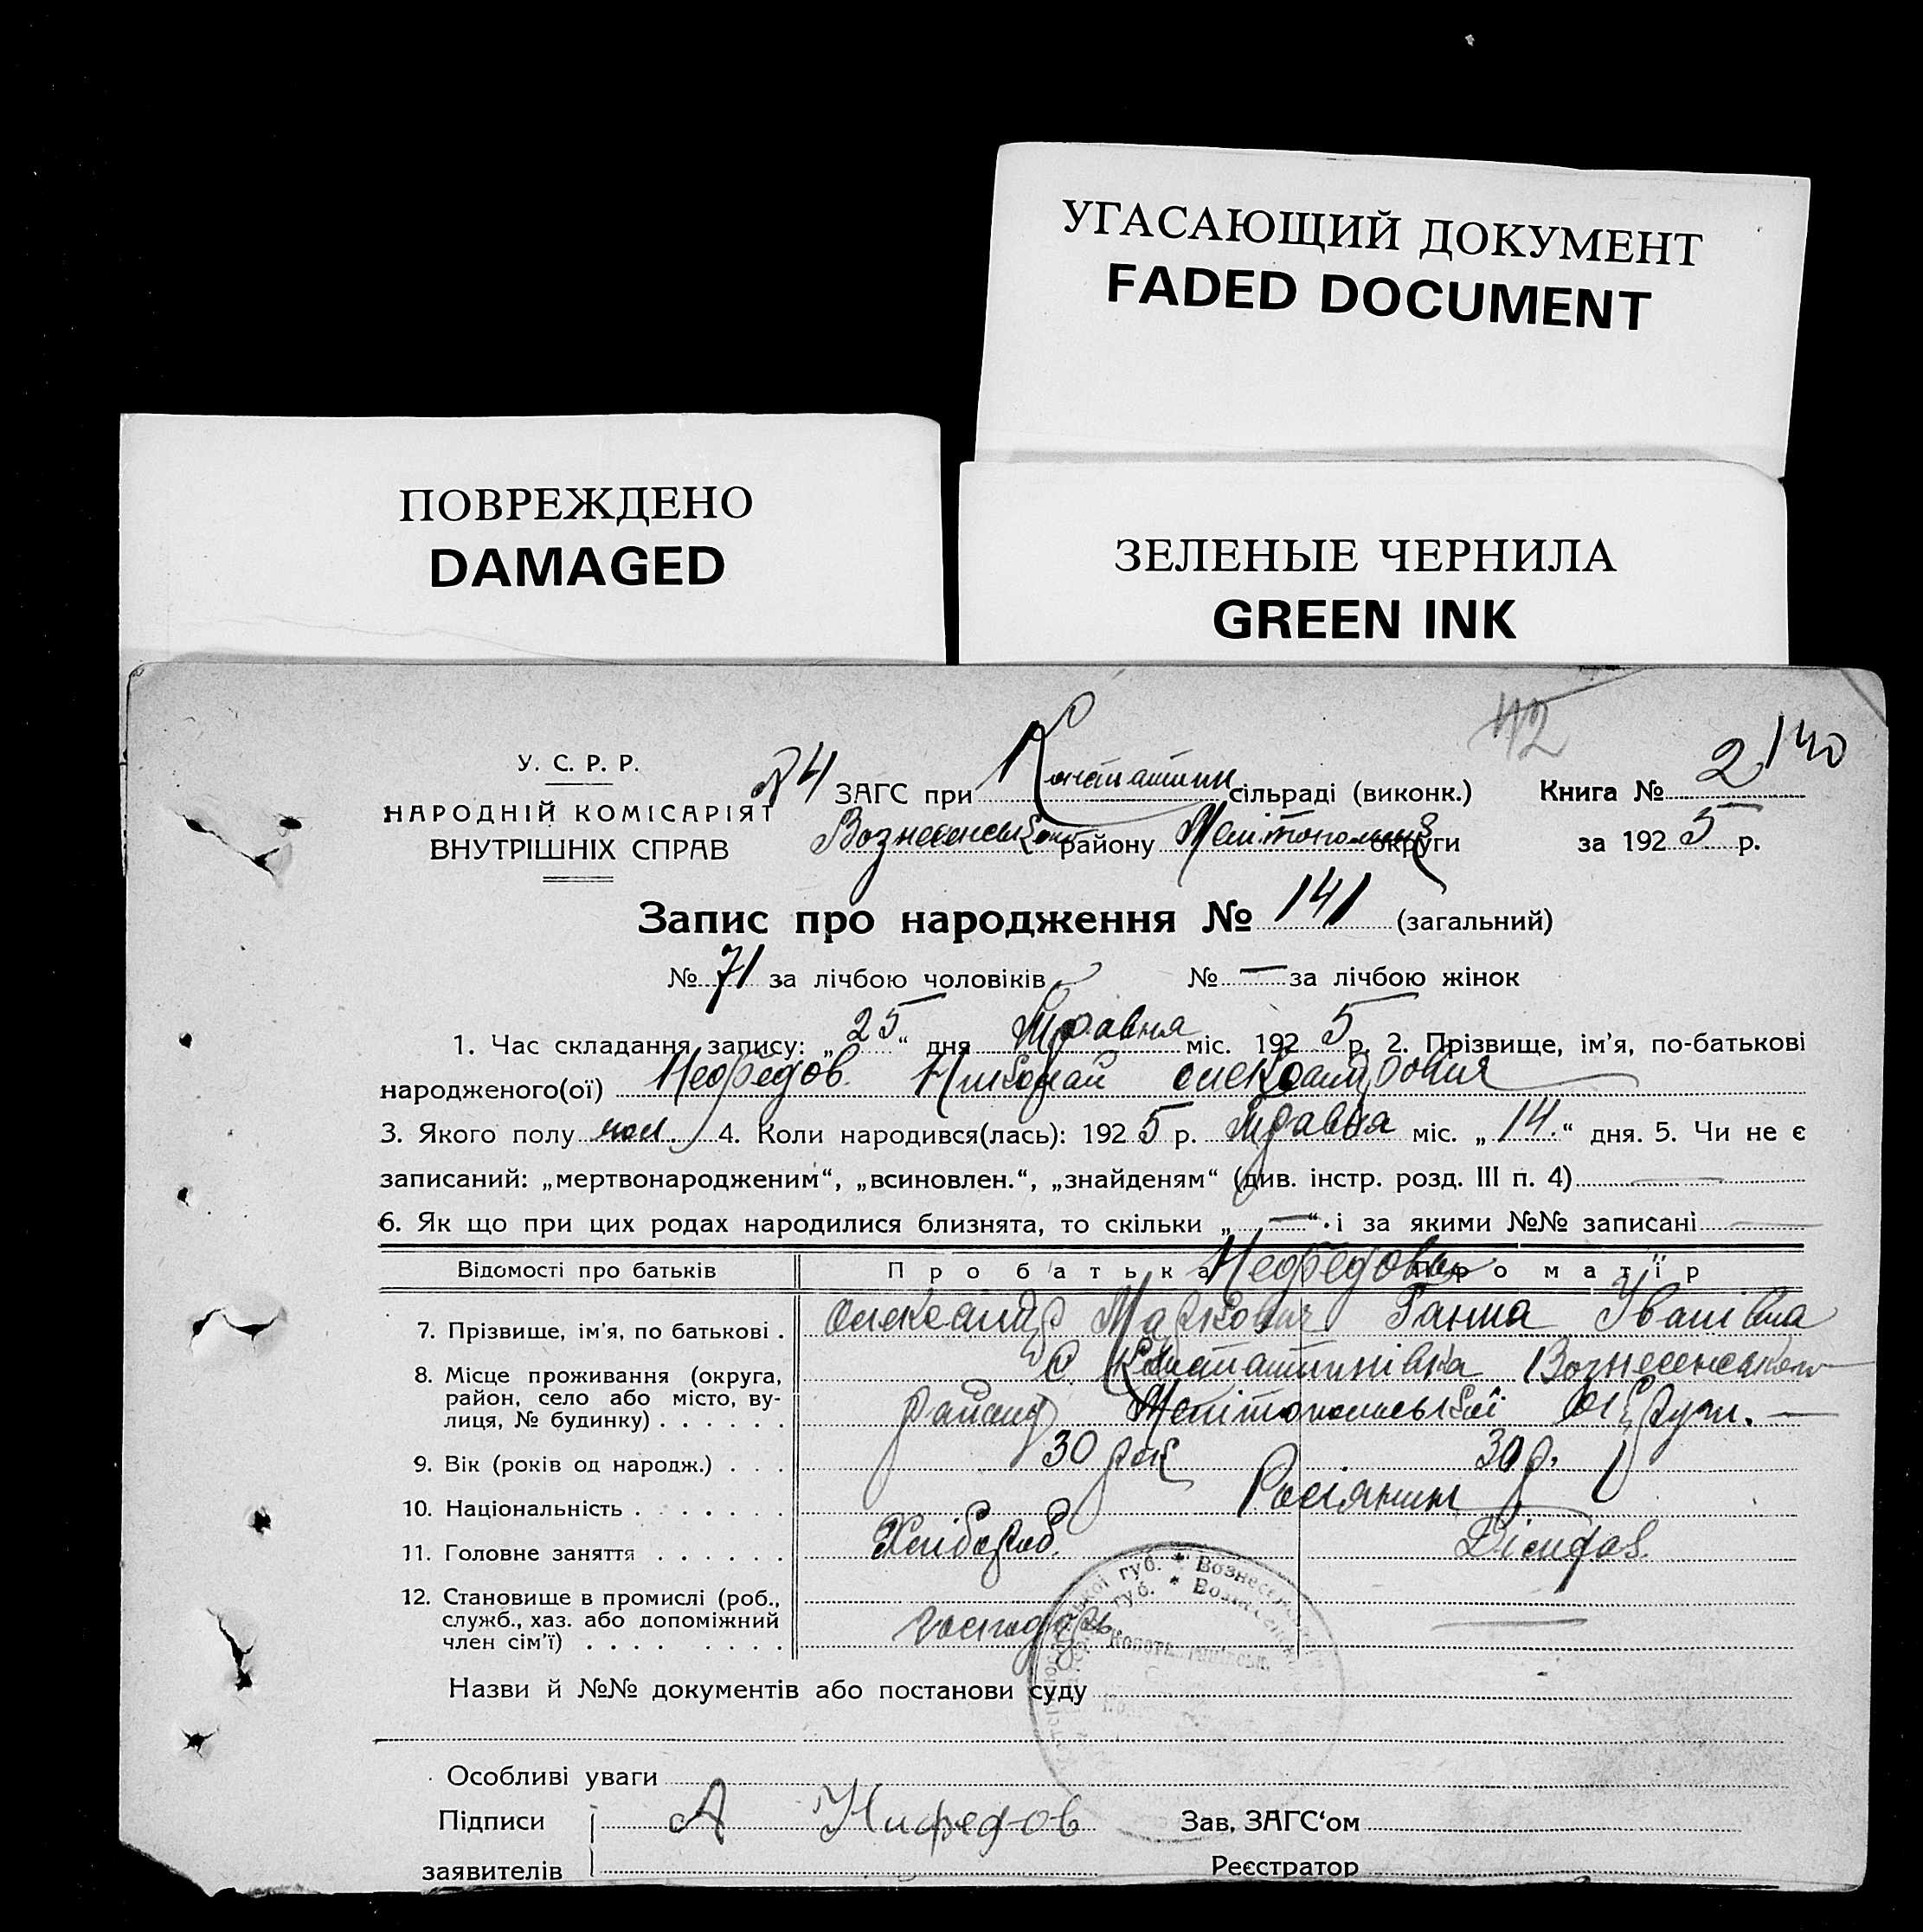 УГАСАЮЩИЙ ДОКУМЕНТ
FADED DOCUMENT
ПОВРЕЖДЕНО
DAMAGED
ЗЕЛЕНЫЕ ЧЕРНИЛА
GREEN INK
42
У. С. Р. Р.
НАРОДНІЙ КОМІСАРІЯТ
ВНУТРІШНІХ СПРАВ
ЗАГС при Констатин сільраді (виконк.)
Вознесенського району Мелітопольськ округи
Книга № 2 140
за 1925 р.
Запис про народження № 141 (загальний)
№ 71 за лічбою чоловіків № — за лічбою жінок
1. Час складання запису: „25“ дня Травня міс. 1925 р. 2. Прізвище, ім'я, по-батькові
народженого(ої) Нефедов Николай Олександрович
3. Якого полу чол. 4. Коли народився(лась): 1925 р. травня міс. „14.“ дня. 5. Чи не є
записаний: „мертвонародженим“, „всиновлен.“, „знайденям“ (див. інстр. розд. III п. 4) —
6. Як що при цих родах народилися близнята, то скільки „—“ і за якими №№ записані —
Відомості про батьків Про батька Нефедови Про матір
7. Прізвище, ім'я, по батькові . Олександр Маркович Ганна Іванівна
8. Місце проживання (округа, с. Констатинівка Вознесенського
район, село або місто, ву-
лиця, № будинку) . . . . . . району Мелітопольської округи. —
9. Вік (років од народж.) . . . 30 рок 30 р.
10. Національність . . . . . . . Росіянин
11. Головне заняття . . . . . . Хлібороб.
12. Становище в промислі (роб.,
служб., хаз. або допоміжний
член сім'ї) . . . . . . . . господарь —
губ. * Вознесенськ
губ. * Вознесенськ
Назви й №№ документів або постанови суду
Особливі уваги
Підписи А Нифедов Зав. ЗАГС‘ом
заявителів Реєстратор